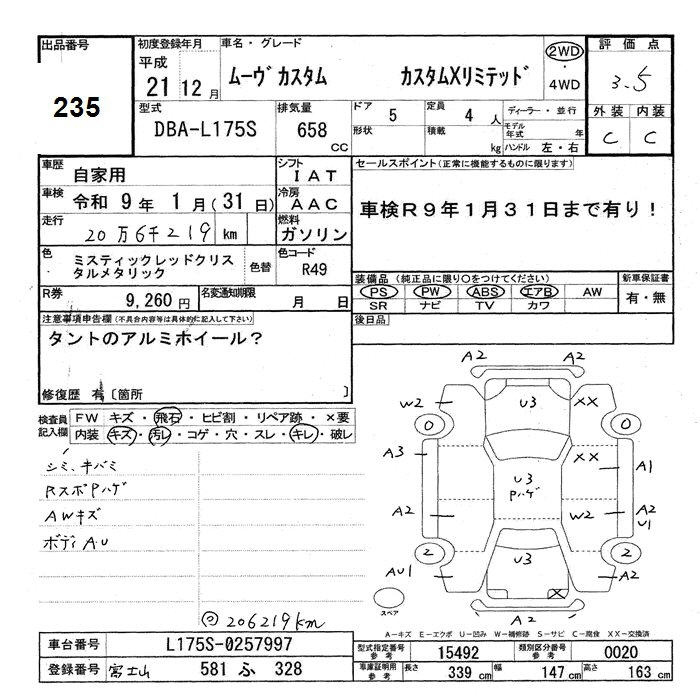 出品番号 初度登録年月 車名・グレード 評価点
235
平成 21 12月 ムーヴカスタム カスタムXリミテッド 2WD・4WD 3.5
型式 排気量 ドア 5 定員 4人 ディーラー・並行 外装 内装
DBA-L175S 658cc 形状 積載 kg モデル年式 年 ハンドル 左・右 C C
車歴 自家用 シフト IAT セールスポイント(正常に機能するものに限ります)
車検 令和 9年 1月(31日) 冷房 AAC 車検R9年1月31日まで有り!
走行 20万6千219 km 燃料 ガソリン
色 ミスティックレッドクリスタルメタリック 色替 色コード R49
装備品(純正品に限り○をつけてください) 新車保証書
R券 9,260円 名変通知期限 月 日 PS PW ABS エアB AW 有・無
SR ナビ TV カワ
注意事項申告欄(不具合内容等は具体的に記入して下さい) 後日品
タントのアルミホイール?
修復歴 有〔箇所 〕
検査員記入欄 FW キズ・飛石・ヒビ割・リペア跡・×要
内装 キズ・汚レ・コゲ・穴・スレ・キレ・破レ
シミ、キバミ
RスポPハゲ
AWキズ
ボディAU
◎206219km
A2 A2
W2 U3 XX
0 0
A3 XX A1
U3 Pハゲ
A2 W2 A2 U1
2 2
AU1 U3 A2
X
スペア A2
A-キズ E-エクボ U-凹み W-補修跡 S-サビ C-腐食 XX-交換済
車台番号 L175S-0257997 型式指定番号 参考 15492 類別区分番号 参考 0020
登録番号 富士山 581 ふ 328 車庫証明用 参考 長さ 339cm 幅 147cm 高さ 163cm